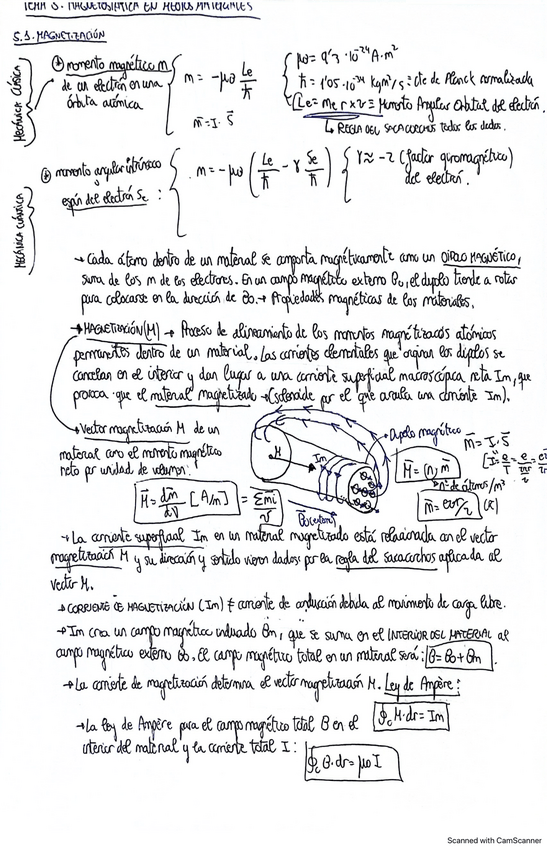 TEMA 5. MAGNETOSTÁTICA EN MEDIOS MATERIALES
5.1. MAGNETIZACIÓN
MECÁNICA CLÁSICA
momento magnético m
de un electrón en una
órbita atómica
m = -μB Le/ħ
m⃗ = I · S⃗
μB = 9'3 · 10⁻²⁴ A·m²
ħ = 1'05 · 10⁻³⁴ kg m²/s : cte de Planck normalizada
Le = me r × v ≡ Momento Angular Orbital del electrón.
↳ REGLA DEL SACACORCHOS todos los dedos.
MECÁNICA CUÁNTICA
momento angular intrínseco
espín del electrón Se :
m = -μB (Le/ħ - γ Se/ħ)
γ ≈ -2 (factor giromagnético)
del electrón.
→ Cada átomo dentro de un material se comporta magnéticamente como un DIPOLO MAGNÉTICO,
suma de los m de los electrones. En un campo magnético externo B₀, el dipolo tiende a rotar
para colocarse en la dirección de B₀. → Propiedades magnéticas de los materiales.
→ MAGNETIZACIÓN (M) → Proceso de alineamiento de los momentos magnéticos atómicos
permanentes dentro de un material. Las corrientes elementales que originan los dipolos se
cancelan en el interior y dan lugar a una corriente superficial macroscópica neta Im, que
provoca que el material magnetizado → (solenoide por el que circula una corriente Im).
→ Vector magnetización M de un
material como el momento magnético
neto por unidad de volumen:
M⃗ = dm⃗/dV [A/m] = Σm⃗i/V
M
Im
B₀ (externo)
Dipolo magnético
m⃗ = I · S⃗
M⃗ = (n) m⃗
nº de átomos/m³
→ La corriente superficial Im en un material magnetizado está relacionada con el vector
magnetización M y su dirección y sentido vienen dados por la regla del sacacorchos aplicada al
vector M.
→ CORRIENTE DE MAGNETIZACIÓN (Im) ≠ corriente de conducción debida al movimiento de carga libre.
→ Im crea un campo magnético inducido Bm, que se suma en el INTERIOR DEL MATERIAL al
campo magnético externo B₀. El campo magnético total en un material será: B = B₀ + Bm
→ La corriente de magnetización determina el vector magnetización M. Ley de Ampère:
∮c M · dr = Im
→ La ley de Ampère para el campo magnético total B en el
interior del material y la corriente total I :
∮c B · dr = μ₀ I
Scanned with CamScanner